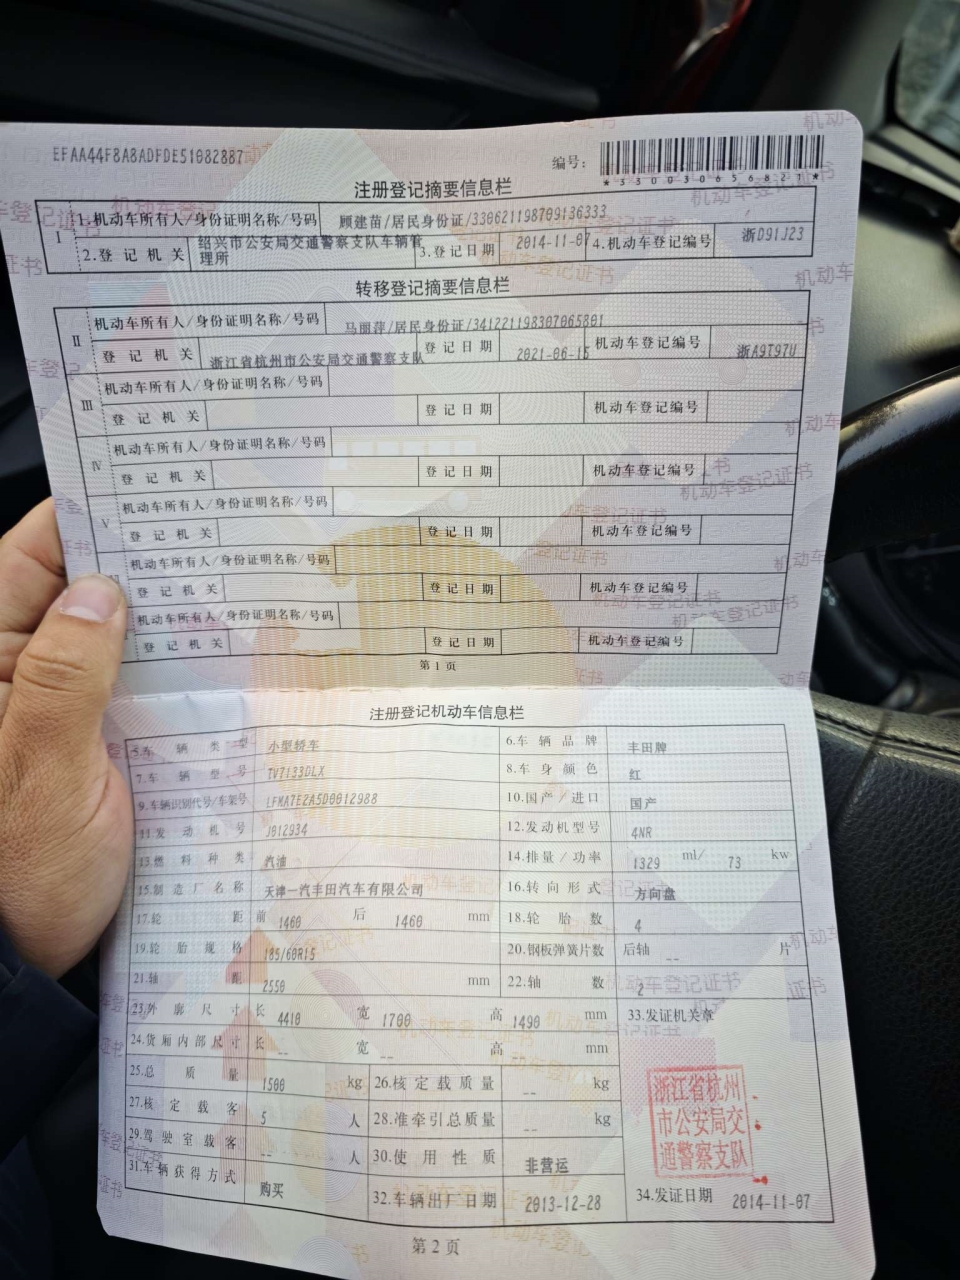 EFAA44F8A8ADFDE51082887
编号：
*330030656821*
注册登记摘要信息栏
I 1.机动车所有人/身份证明名称/号码 顾建苗/居民身份证/330621198709136333
2.登记机关 绍兴市公安局交通警察支队车辆管理所 3.登记日期 2014-11-07 4.机动车登记编号 浙D91J23
转移登记摘要信息栏
II 机动车所有人/身份证明名称/号码 马丽萍/居民身份证/341221198307065801
登记机关 浙江省杭州市公安局交通警察支队 登记日期 2021-06-15 机动车登记编号 浙A9T97U
III 机动车所有人/身份证明名称/号码
登记机关 登记日期 机动车登记编号
IV 机动车所有人/身份证明名称/号码
登记机关 登记日期 机动车登记编号
V 机动车所有人/身份证明名称/号码
登记机关 登记日期 机动车登记编号
机动车所有人/身份证明名称/号码
登记机关 登记日期 机动车登记编号
机动车所有人/身份证明名称/号码
登记机关 登记日期 机动车登记编号
第1页
注册登记机动车信息栏
5.车辆类型 小型轿车 6.车辆品牌 丰田牌
7.车辆型号 TV7133DLX 8.车身颜色 红
9.车辆识别代号/车架号 LFMA7E2A5D0012988 10.国产/进口 国产
11.发动机号 J012934 12.发动机型号 4NR
13.燃料种类 汽油 14.排量/功率 1329 ml/ 73 kw
15.制造厂名称 天津一汽丰田汽车有限公司 16.转向形式 方向盘
17.轮距 前 1460 后 1460 mm 18.轮胎数 4
19.轮胎规格 185/60R15 20.钢板弹簧片数 后轴 -- 片
21.轴距 2550 mm 22.轴数 2
23.外廓尺寸 长 4410 宽 1700 高 1490 mm 33.发证机关章
24.货厢内部尺寸 长 -- 宽 -- 高 mm
25.总质量 1500 kg 26.核定载质量 -- kg
27.核定载客 5 人 28.准牵引总质量 -- kg
29.驾驶室载客 -- 人 30.使用性质 非营运
31.车辆获得方式 购买 32.车辆出厂日期 2013-12-28 34.发证日期 2014-11-07
浙江省杭州
市公安局交
通警察支队
第2页